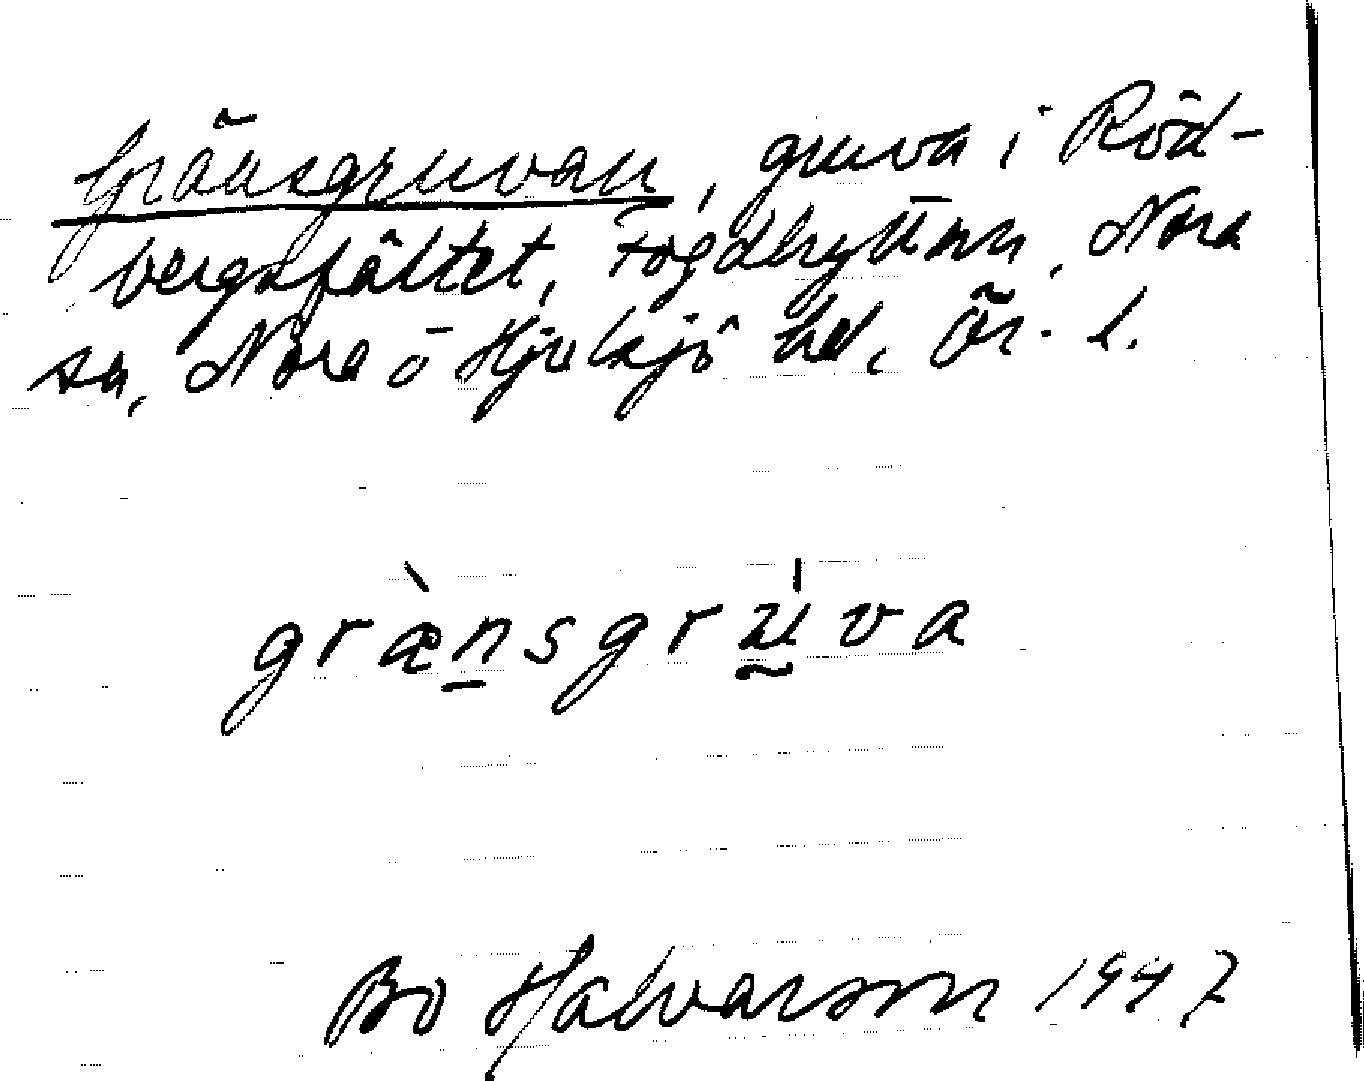 Gränsgruvan, gruva i Röd-
bergsfältet, Fogdhyttan, Nora
sn, Nora o Hjulsjö hd, Ör. l.
græ̀nsgru̍va
Bo Halvarson 1947